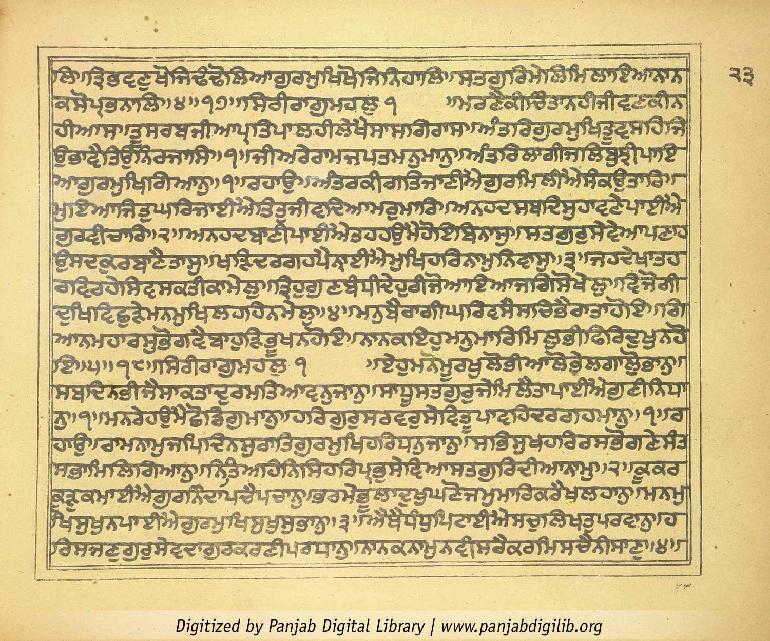 ਲਿ॥ਤ੍ਰਿਭਵਣੁਖੋਜਿਢੰਢੋਲਿਆਗੁਰਮੁਖਿਖੋਜਿਨਿਹਾਲਿ॥ਸਤਗੁਰਿਮੇਲਿਮਿਲਾਇਆਨਾਨ
ਕਸੋਪ੍ਰਭਨਾਲਿ॥੪॥੧੭॥ਸਿਰੀਰਾਗੁਮਹਲੁ ੧ ॥ਮਰਣੈਕੀਚਿੰਤਾਨਹੀਜੀਵਣਕੀਨ
ਹੀਆਸ॥ਤੂਸਰਬਜੀਆਪ੍ਰਤਿਪਾਲਹੀਲੇਖੈਸਾਸਗਿਰਾਸ॥ਅੰਤਰਿਗੁਰਮੁਖਿਤੂਵਸਹਿਜਿ
ਉਭਾਵੈਤਿਉਨਿਰਜਾਸਿ॥੧॥ਜੀਅਰੇਰਾਮਜਪਤਮਨੁਮਾਨੁ॥ਅੰਤਰਿਲਾਗੀਜਲਿਬੁਝੀਪਾਇ
ਆਗੁਰਮੁਖਿਗਿਆਨੁ॥੧॥ਰਹਾਉ॥ਅੰਤਰਕੀਗਤਿਜਾਣੀਐਗੁਰਮਿਲੀਐਸੰਕਉਤਾਰਿ॥
ਮੁਇਆਜਿਤੁਘਰਿਜਾਈਐਤਿਤੁਜੀਵਦਿਆਮਰੁਮਾਰਿ॥ਅਨਹਦਸਬਦਿਸੁਹਾਵਣੇਪਾਈਐ
ਗੁਰਵੀਚਾਰਿ॥੨॥ਅਨਹਦਬਾਣੀਪਾਈਐਤਹਹਉਮੈਹੋਇਬਿਨਾਸੁ॥ਸਤਗੁਰੁਸੇਵੇਆਪਣਾਹ
ਉਸਦਕੁਰਬਾਣੈਤਾਸੁ॥ਖੜਿਦਰਗਹਪੈਨਾਈਐਮੁਖਿਹਰਿਨਾਮੁਨਿਵਾਸੁ॥੩॥ਜਹਦੇਖਾਤਹ
ਰਵਿਰਹੇਸਿਵਸਕਤੀਕਾਮੇਲੁ॥ਤ੍ਰਿਹੁਗੁਣਬੰਧੀਦੇਹੁਰੀਜੋਆਇਆਜਗਿਸੋਖੇਲੁ॥ਵਿਜੋਗੀ
ਦੁਖਿਵਿਛੁੜੇਮਨਮੁਖਿਲਹਹਿਨਮੇਲੁ॥੪॥ਮਨੁਬੈਰਾਗੀਘਰਿਵਸੈਸਚਿਭੈਰਾਤਾਹੋਇ॥ਗਿ
ਆਨਮਹਾਰਸੁਭੋਗਵੈਬਾਹੁੜਿਭੂਖਨਹੋਇ॥ਨਾਨਕਇਹੁਮਨੁਮਾਰਿਮਿਲੁਭੀਫਿਰਿਦੁਖੁਨਹੋ
ਇ॥੫॥੧੮॥ਸਿਰੀਰਾਗੁਮਹਲੁ ੧ ॥ਏਹੁਮਨੋਮੂਰਖੁਲੋਭੀਆਲੋਭੇਲਗਾਲੋੁਭਾਨੁ॥
ਸਬਦਿਨਭੀਜੈਸਾਕਤਾਦੁਰਮਤਿਆਵਨੁਜਾਨੁ॥ਸਾਧੂਸਤਗੁਰੁਜੇਮਿਲੈਤਾਪਾਈਐਗੁਣੀਨਿਧਾ
ਨੁ॥੧॥ਮਨਰੇਹਉਮੈਛੋਡਿਗੁਮਾਨੁ॥ਹਰਿਗੁਰੁਸਰਵਰੁਸੇਵਿਤੂਪਾਵਹਿਦਰਗਹਮਾਨੁ॥੧॥ਰ
ਹਾਉ॥ਰਾਮਨਾਮੁਜਪਿਦਿਨਸੁਰਾਤਿਗੁਰਮੁਖਿਹਰਿਧਨੁਜਾਨੁ॥ਸਭਿਸੁਖਹਰਿਰਸਭੋਗਣੇਸੰਤ
ਸਭਾਮਿਲਿਗਿਆਨੁ॥ਨਿਤਿਅਹਿਨਿਸਿਹਰਿਪ੍ਰਭੁਸੇਵਿਆਸਤਗੁਰਿਦੀਆਨਾਮੁ॥੨॥ਕੂਕਰ
ਕੂੜੁਕਮਾਈਐਗੁਰਨਿੰਦਾਪਚੈਪਚਾਨੁ॥ਭਰਮੇਭੂਲਾਦੁਖੁਘਣੋਜਮੁਮਾਰਿਕਰੈਖੁਲਹਾਨੁ॥ਮਨਮੁ
ਖਿਸੁਖੁਨਪਾਈਐਗੁਰਮੁਖਿਸੁਖੁਸੁਭਾਨੁ॥੩॥ਐਥੈਧੰਧੁਪਿਟਾਈਐਸਚੁਲਿਖਤੁਪਰਵਾਨੁ॥ਹ
ਰਿਸਜਣੁਗੁਰੁਸੇਵਦਾਗੁਰਕਰਣੀਪਰਧਾਨੁ॥ਨਾਨਕਨਾਮੁਨਵੀਸਰੈਕਰਮਿਸਚੈਨੀਸਾਣੁ॥੪॥
੨੩
Digitized by Panjab Digital Library | www.panjabdigilib.org